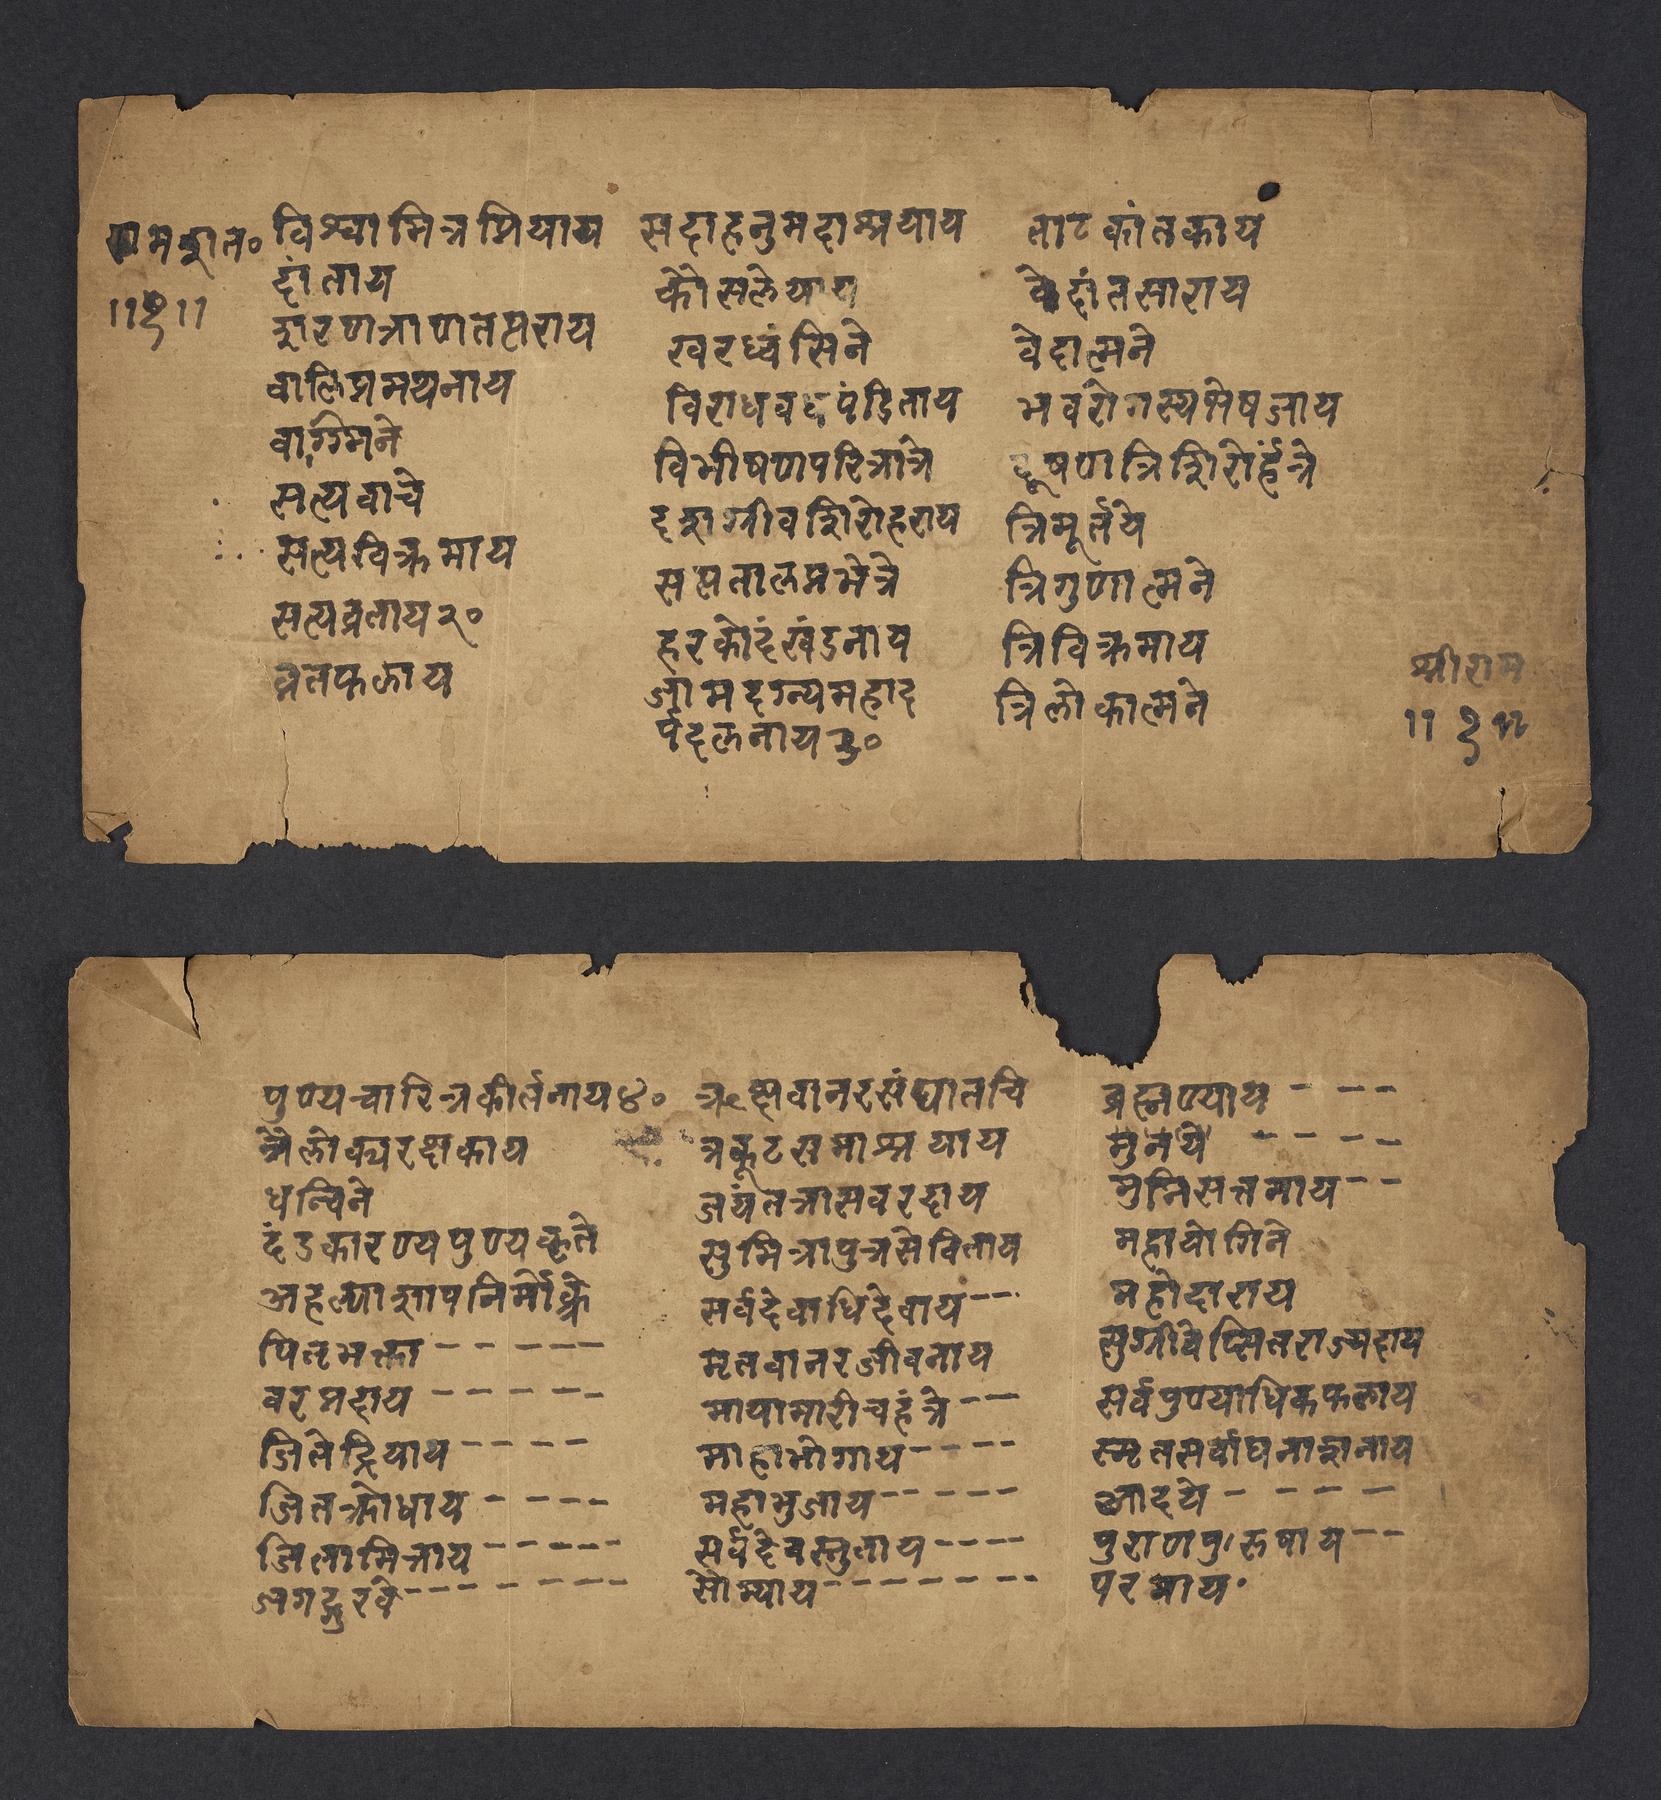 रामशत०
॥१॥
विश्वामित्रप्रियाय
दांताय
शरणत्राणतत्पराय
वालिप्रमथनाय
वाग्मिने
सत्यवाचे
सत्यविक्रमाय
सत्यव्रताय२०
व्रतफलाय
सदाहनुमदाश्रयाय
कौसलेयाय
खरध्वंसिने
विराधवधपंडिताय
विभीषणपरित्रात्रे
दशग्रीवशिरोहराय
सप्ततालप्रभेत्रे
हरकोदंखंडनाय
जामदग्न्यमहाद
र्पदलनाय३०
ताटकांतकाय
वेदांतसाराय
वेदात्मने
भवरोगस्यभेषजाय
दूषणत्रिशिरोर्हंत्रे
त्रिमूर्तये
त्रिगुणात्मने
त्रिविक्रमाय
त्रिलोकात्मने
श्रीराम
॥१॥
पुण्यचारित्रकीर्तनाय४०
त्रैलोक्यरक्षकाय
धन्विने
दंडकारण्यपुण्यकृते
अहल्याशापनिर्मोक्त्रे
पितृभक्ता-----
वरप्रदाय-----
जितेंद्रियाय----
जितक्रोधाय----
जितामित्राय-----
जगद्गुरवे-------
ऋक्षवानरसंघातचि
त्रकूटसमाश्रयाय
जयंतत्रासवरदाय
सुमित्रापुत्रसेविताय
सर्वदेवाधिदेवाय--
मृतवानरजीवनाय
मायामारीचहंत्रे--
माहाभोगाय----
महाभुजाय-----
सर्वदेवस्तुताय----
सौम्याय-------
ब्रह्मण्याय---
मुनये----
मुनिसत्तमाय--
महायोगिने
महोदाराय
सुग्रीवेप्सितराज्यदाय
सर्वपुण्याधिकफलाय
स्मृतसर्वाघनाशनाय
आदये----
पुराणपुरुषाय--
परमाय